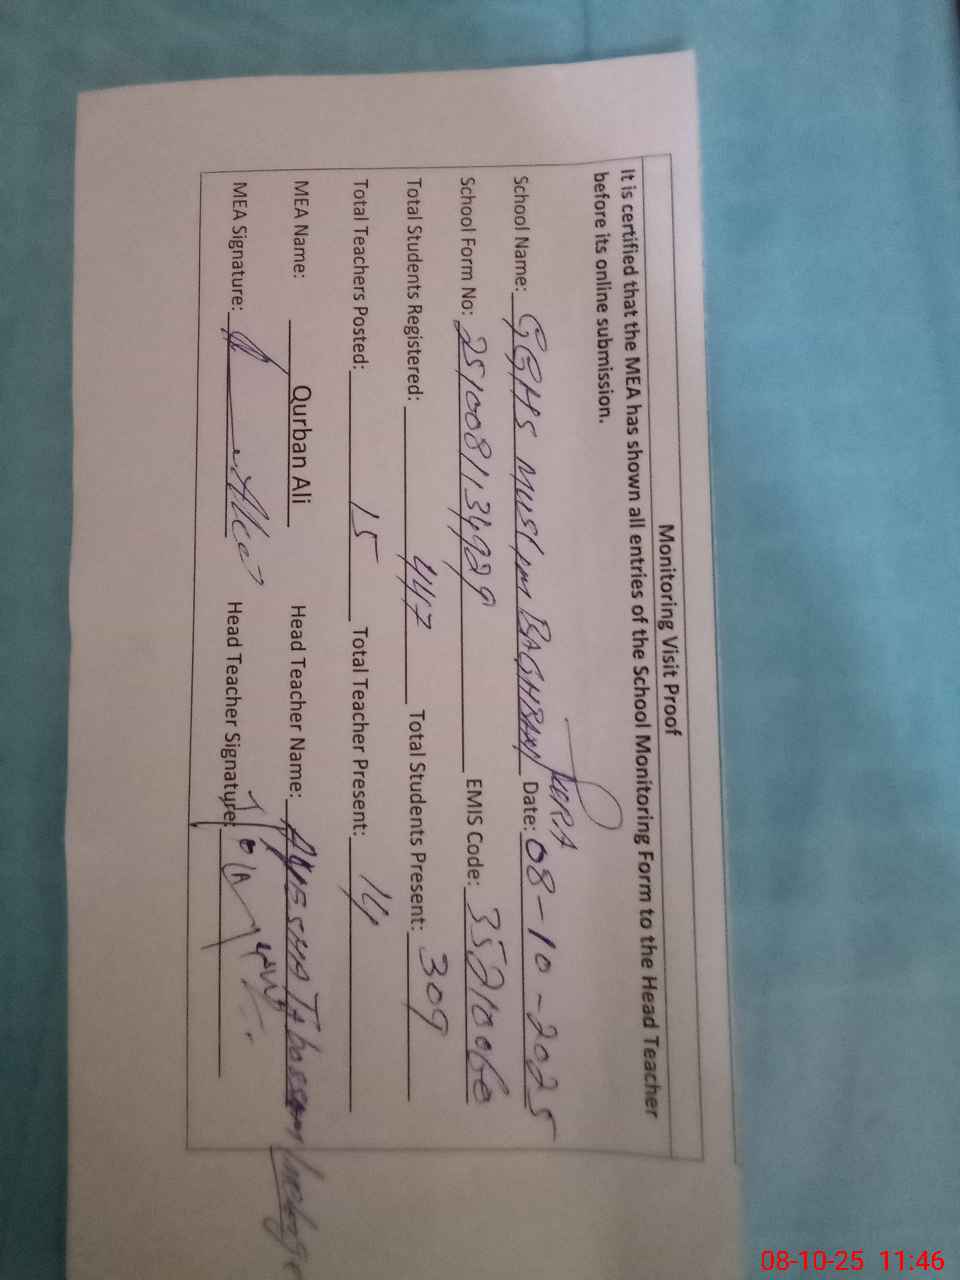 Monitoring Visit Proof
It is certified that the MEA has shown all entries of the School Monitoring Form to the Head Teacher
before its online submission.
School Name: GGHS MUSLIM BAGHBANPURA Date: 08-10-2025
School Form No: 2510081134929 EMIS Code: 35210060
Total Students Registered: 447 Total Students Present: 309
Total Teachers Posted: 15 Total Teacher Present: 14
MEA Name: Qurban Ali Head Teacher Name: AYESHA Tabossam Incharge
MEA Signature: Head Teacher Signature:
08-10-25 11:46